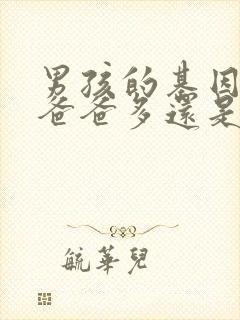 男孩的基因
爸爸多還是
毓華兒